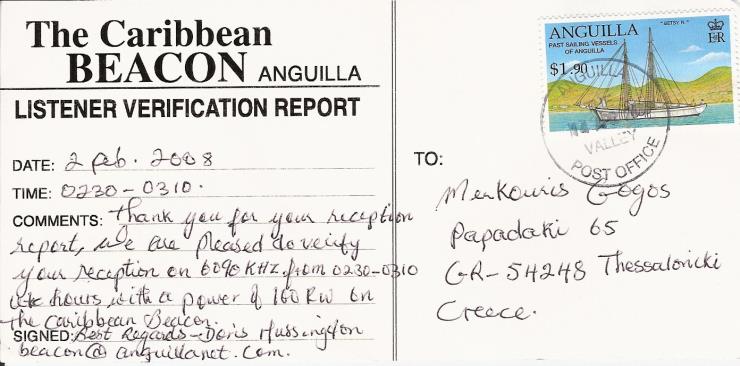 The Caribbean
BEACON ANGUILLA
LISTENER VERIFICATION REPORT
DATE: 2 Feb. 2008
TIME: 0230-0310.
COMMENTS: Thank you for your reception
report, we are pleased to verify
your reception on 6090 KHz from 0230-0310
hours with a power of 100 KW on
the Caribbean Beacon.
SIGNED: Best Regards - Doris Hussington
beacon@anguillanet.com.
ANGUILLA
"BETSY R."
PAST SAILING VESSELS
OF ANGUILLA
EIIR
$1.90
ANGUILLA
VALLEY
POST OFFICE
TO:
Merkouris Gogos
Papadaki 65
GR-54248 Thessaloniki
Greece.